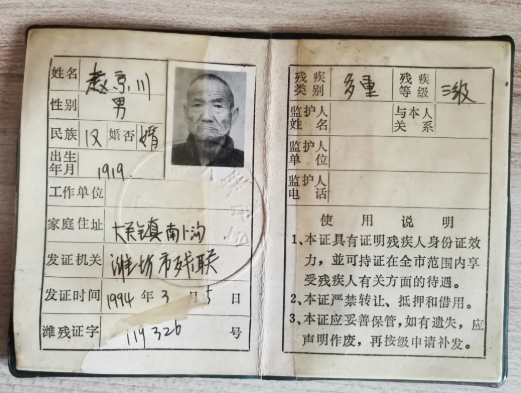 姓名 赵京川
性别 男
民族 汉 婚否 婚
出生年月 1919.
工作单位
家庭住址 镇南卜沟
发证机关 潍坊市残联
发证时间 1994年3月5日
潍残证字 119326 号
残疾类别 多重 残疾等级 三级
监护人姓名 与本人关系
监护人单位
监护人电话
使用说明
1、本证具有证明残疾人身份证效
力，并可持证在全市范围内享
受残疾人有关方面的待遇。
2、本证严禁转让、抵押和借用。
3、本证应妥善保管，如有遗失，应
声明作废，再按级申请补发。